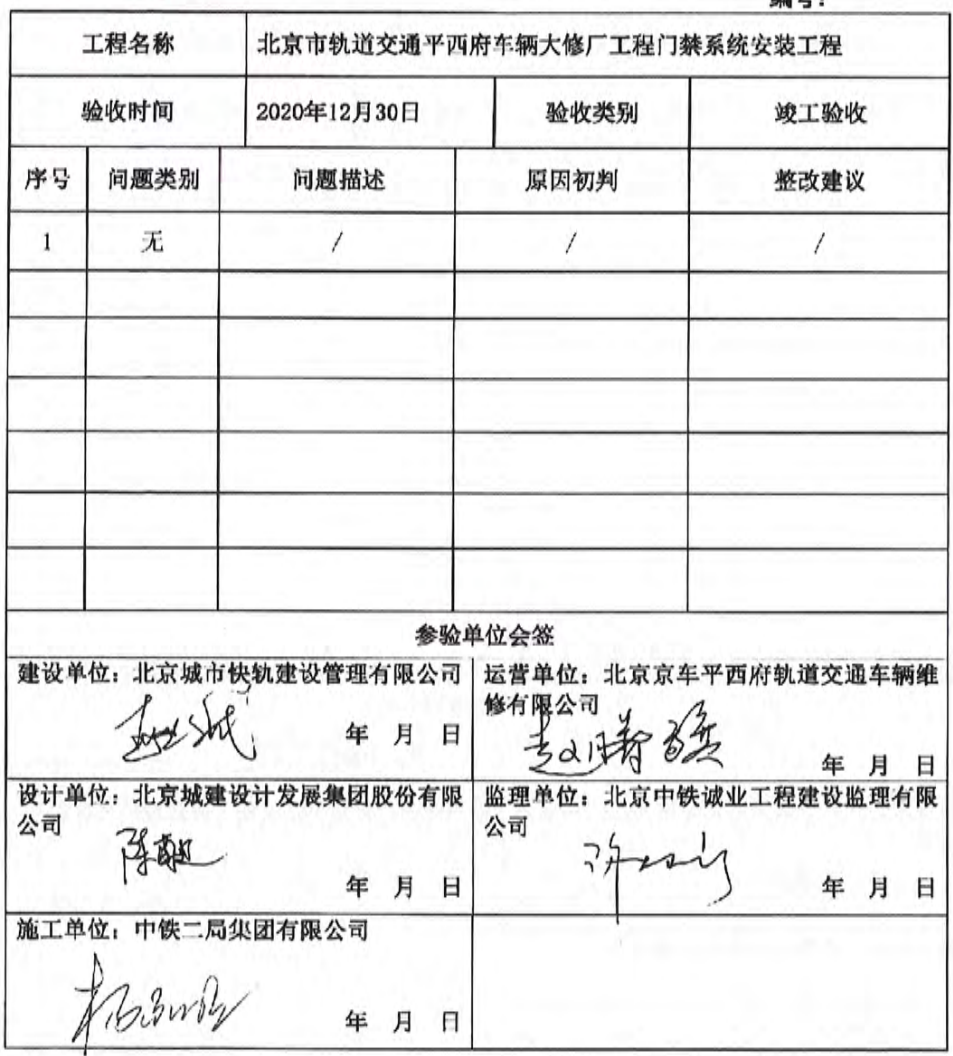 编号：
工程名称 北京市轨道交通平西府车辆大修厂工程门禁系统安装工程
验收时间 2020年12月30日 验收类别 竣工验收
序号 问题类别 问题描述 原因初判 整改建议
1 无 / / /
参验单位会签
建设单位：北京城市快轨建设管理有限公司
年 月 日
运营单位：北京京车平西府轨道交通车辆维
修有限公司
年 月 日
设计单位：北京城建设计发展集团股份有限
公司
年 月 日
监理单位：北京中铁诚业工程建设监理有限
公司
年 月 日
施工单位：中铁二局集团有限公司
年 月 日